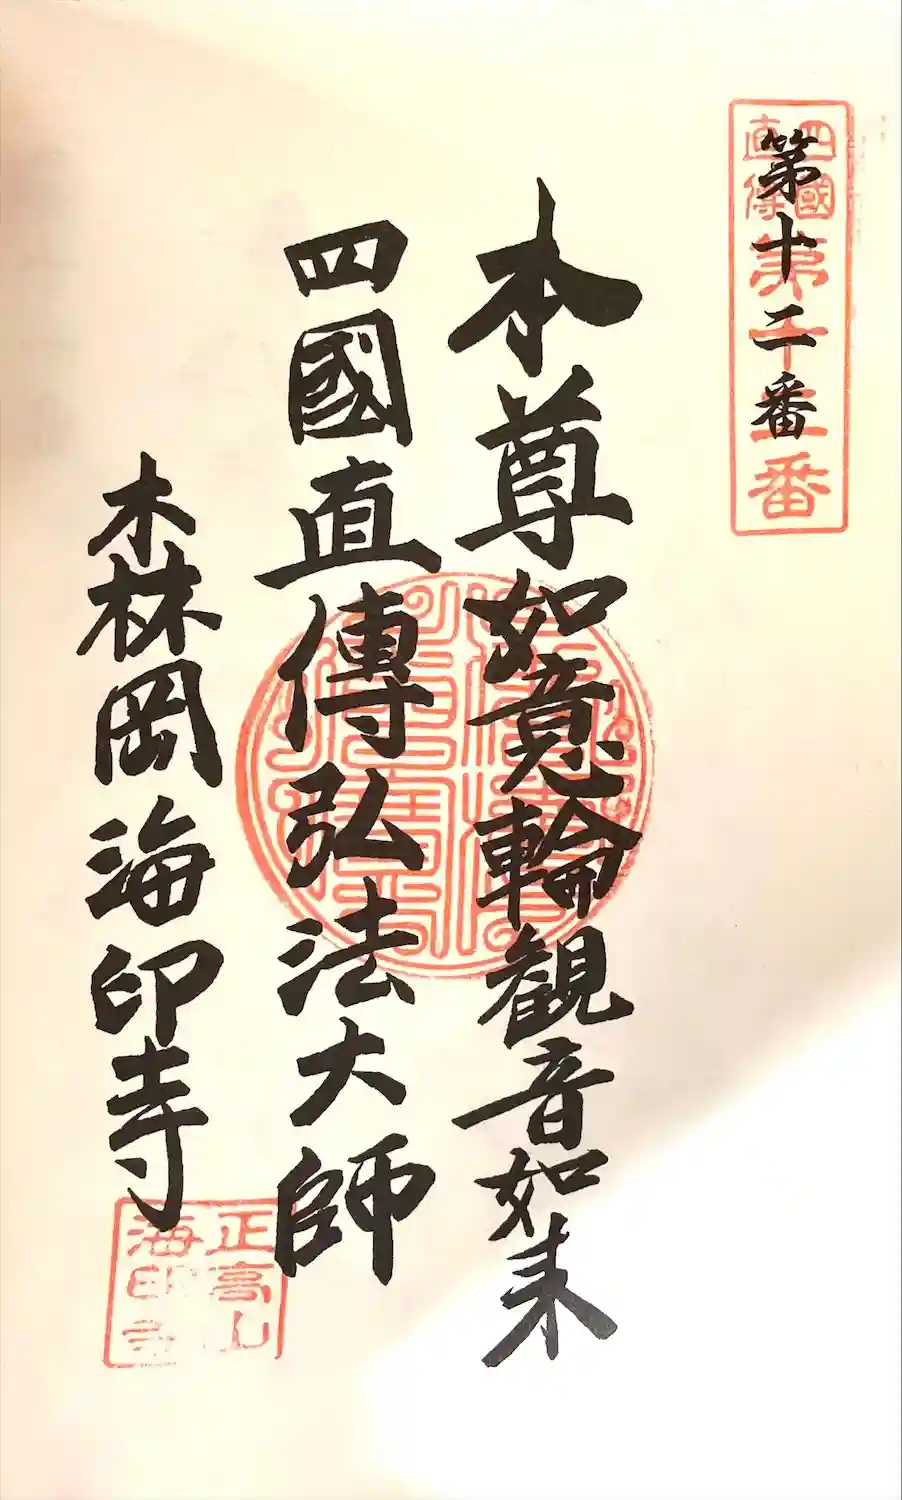 第十二番
四國
直傳
第十二番
本尊如意輪觀音如来
四國直傳弘法大師
木林岡海印寺
正高山
海印寺